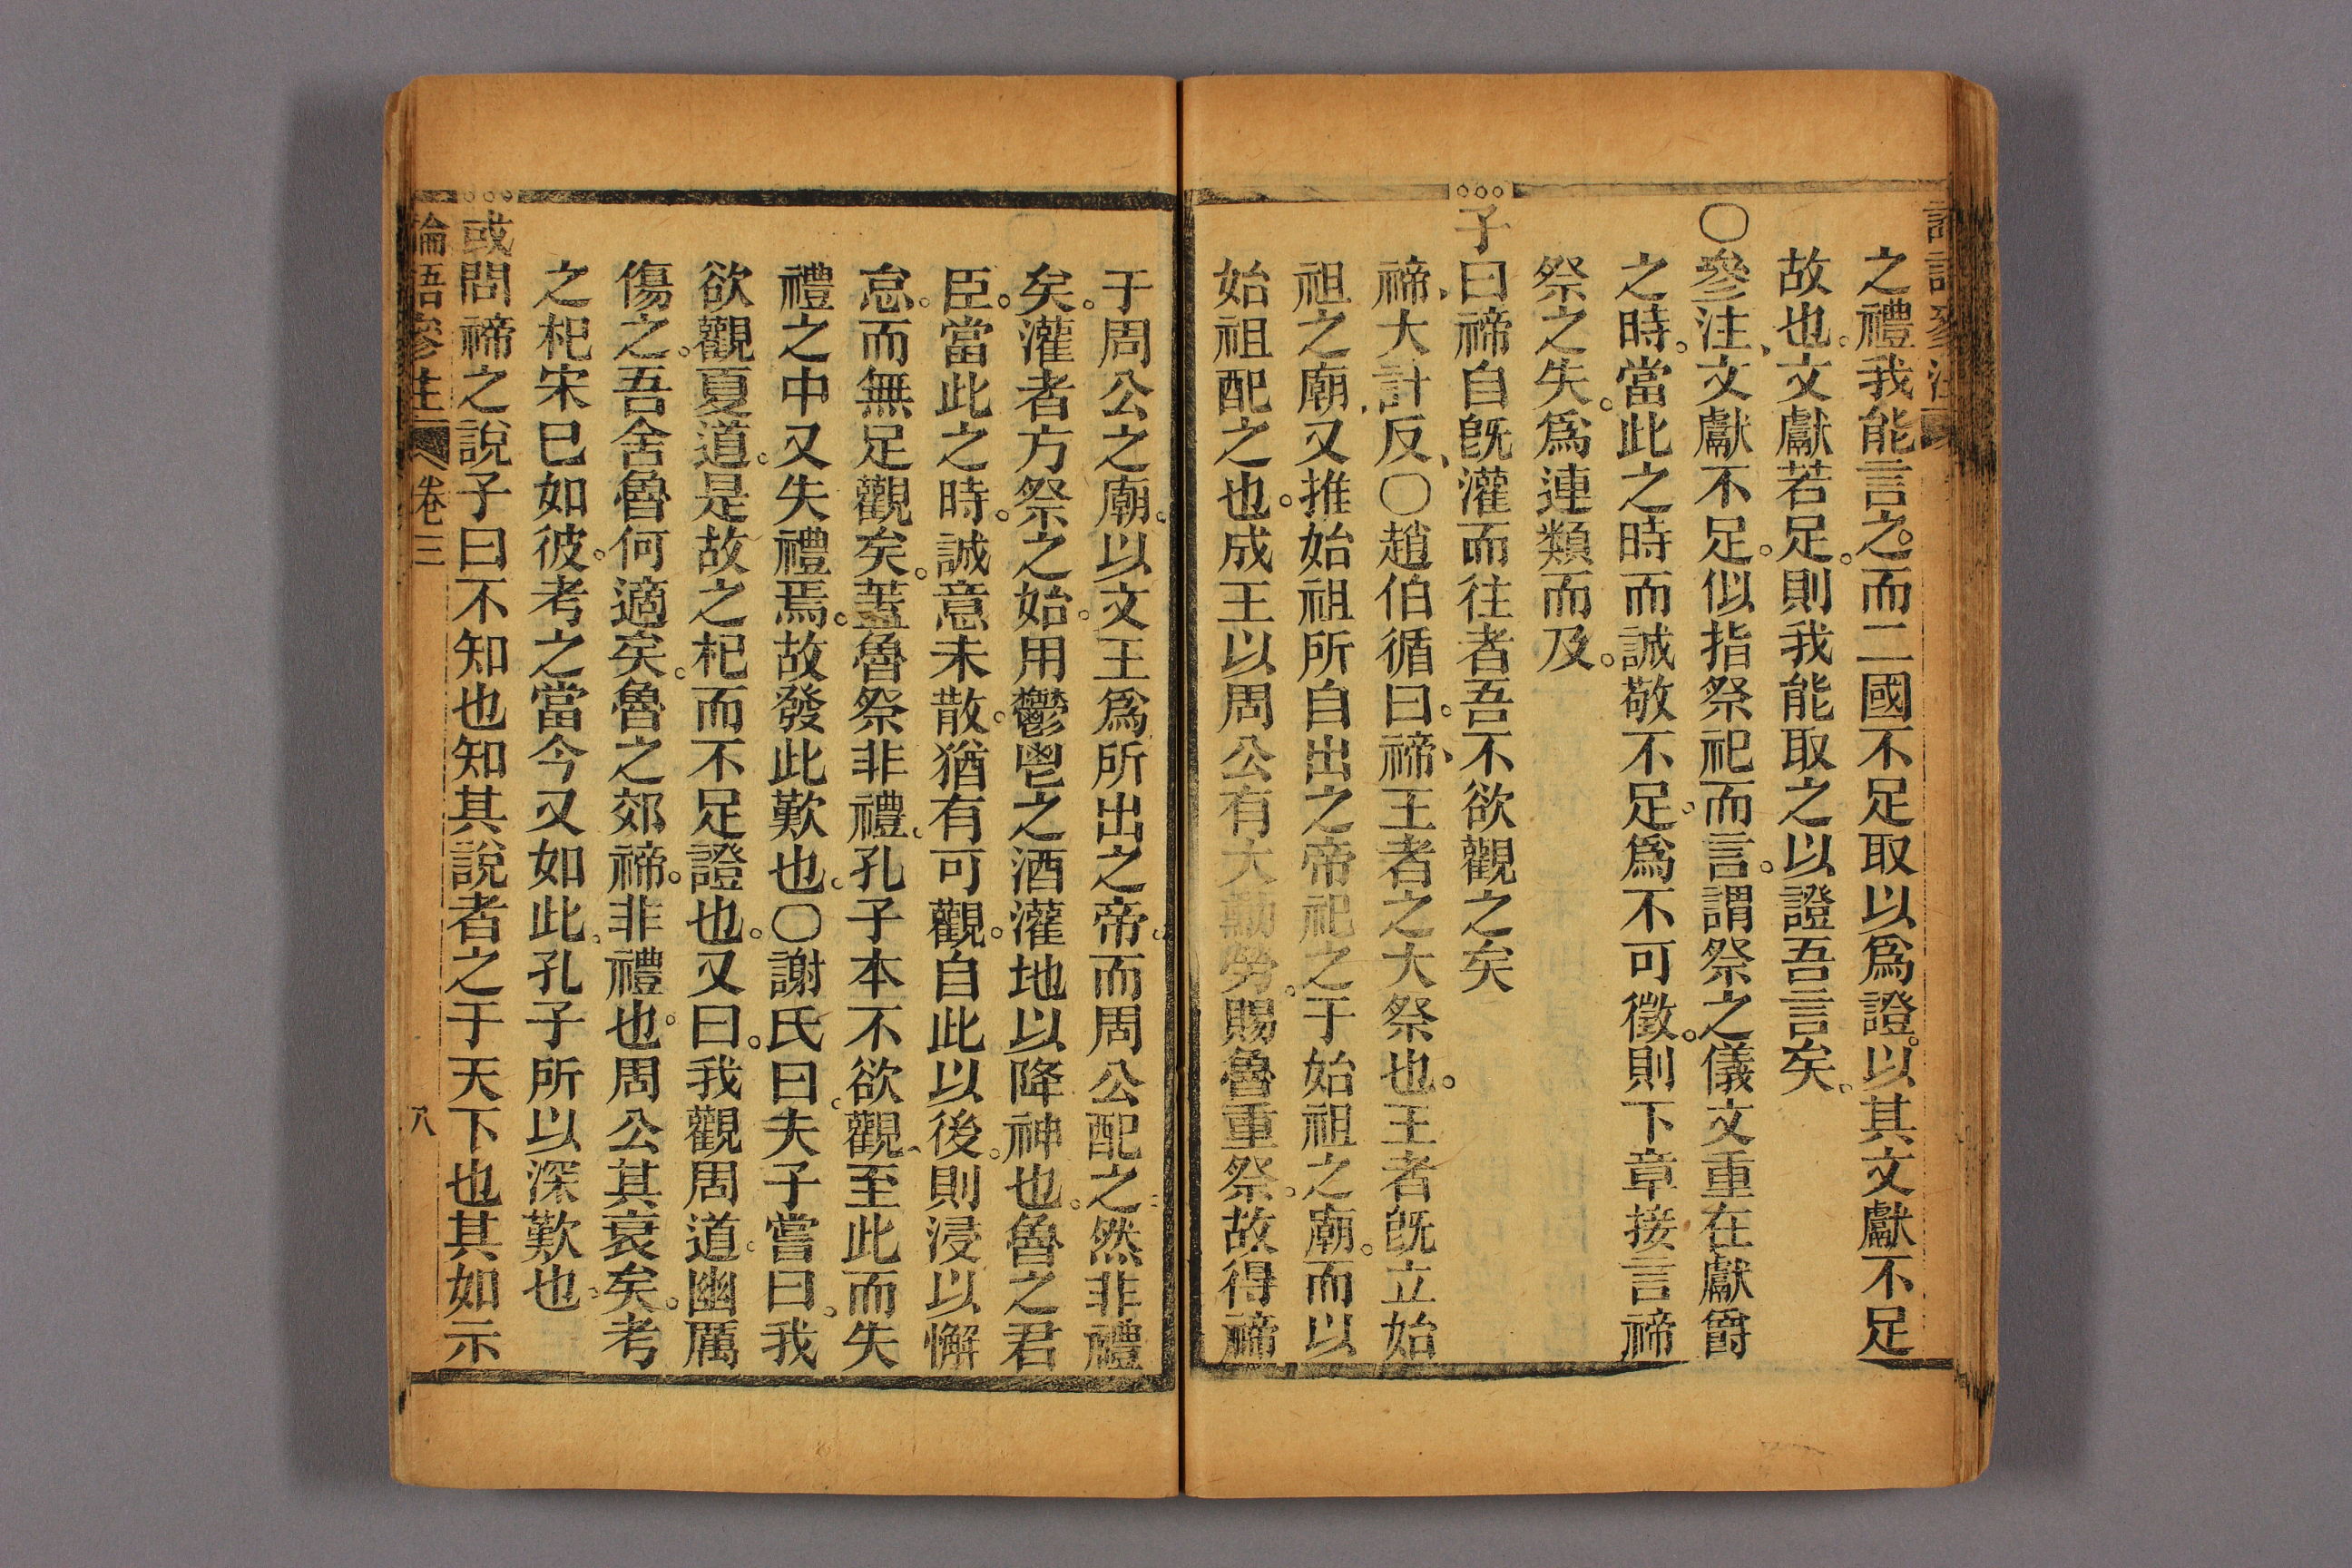 之禮我能言之。而二國不足取以爲證。以其文獻不足
故也。文獻若足。則我能取之以證吾言矣。
〇參注、文獻不足。似指祭祀而言。謂祭之儀文重在獻爵
之時。當此之時而誠敬不足。爲不可徵。則下章接言禘
祭之失。爲連類而及。
子曰禘自旣灌而往者吾不欲觀之矣
禘、大計反、〇趙伯循曰。禘、王者之大祭也。王者旣立始
祖之廟、又推始祖所自出之帝祀之于始祖之廟。而以
始祖配之也。成王以周公有大勳勞。賜魯重祭。故得禘
于周公之廟。以文王爲所出之帝。而周公配之然非禮
矣。灌者方祭之始。用鬱鬯之酒灌地以降神也。魯之君
臣。當此之時。誠意未散。猶有可觀。自此以後。則浸以懈
怠。而無足觀矣。葢魯祭非禮。孔子本不欲觀、至此而失
禮之中又失禮焉。故發此歎也。〇謝氏曰。夫子嘗曰。我
欲觀夏道。是故之杞而不足證也。又曰。我觀周道。幽厲
傷之。吾舍魯何適矣。魯之郊禘。非禮也。周公其衰矣。考
之杞宋已如彼。考之當今又如此。孔子所以深歎也。
或問禘之說子曰不知也知其說者之于天下也其如示
論語參注 卷三 八